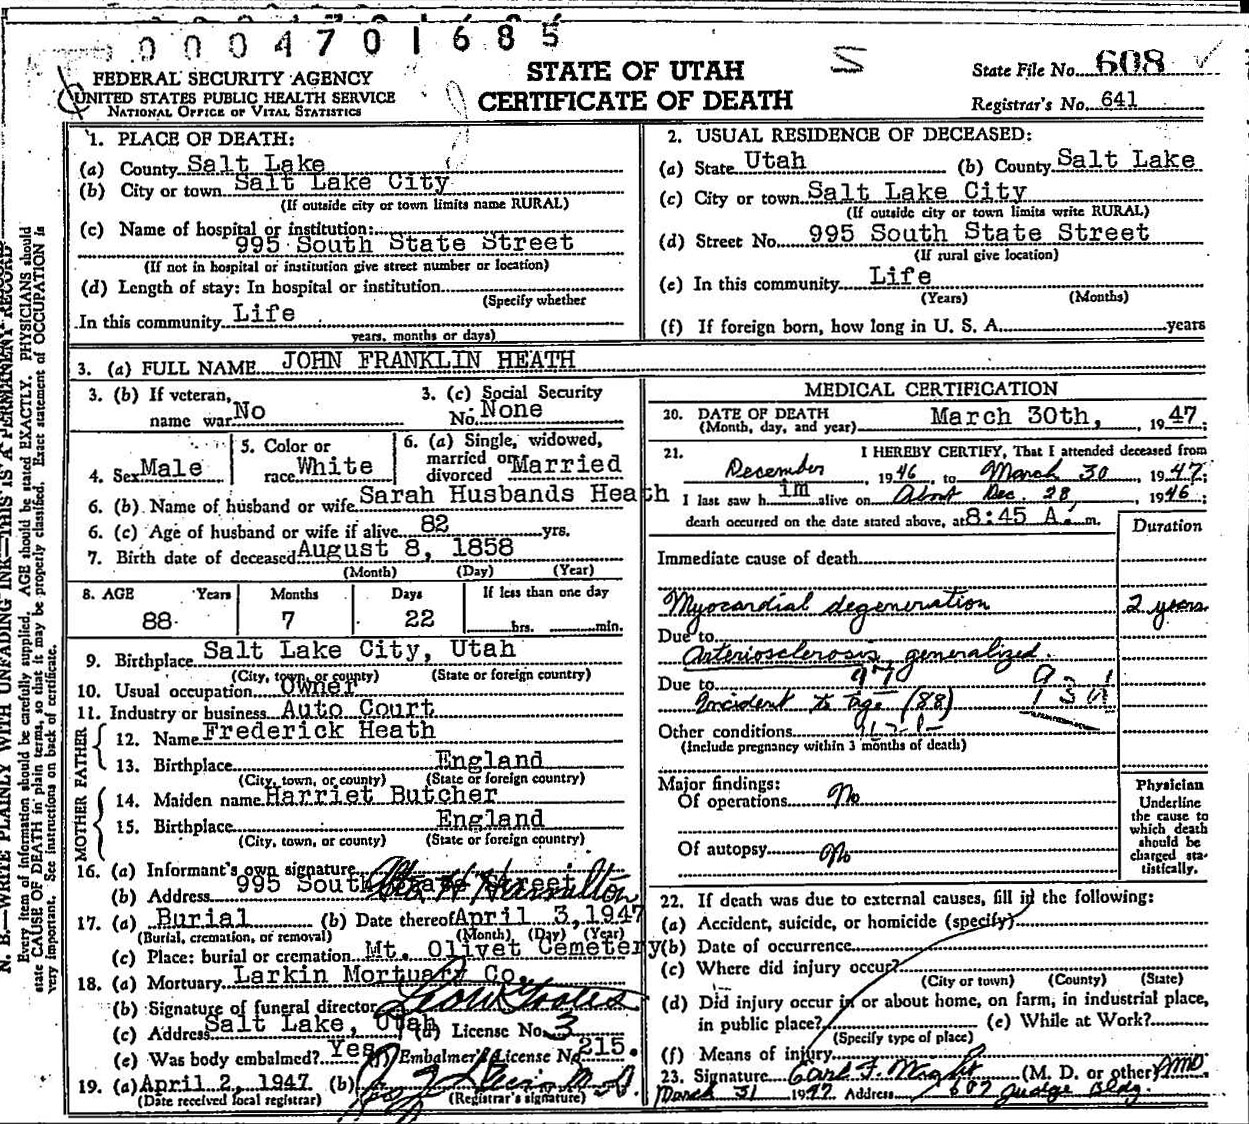 0004701685
FEDERAL SECURITY AGENCY
UNITED STATES PUBLIC HEALTH SERVICE
NATIONAL OFFICE OF VITAL STATISTICS
STATE OF UTAH
CERTIFICATE OF DEATH
S
State File No. 608
Registrar's No. 641
N. B.—WRITE PLAINLY WITH UNFADING INK—THIS IS A PERMANENT RECORD
Every item of information should be carefully supplied. AGE should be stated EXACTLY. PHYSICIANS should
state CAUSE OF DEATH in plain terms, so that it may be properly classified. Exact statement of OCCUPATION is
very important. See instructions on back of certificate.
1. PLACE OF DEATH:
(a) County Salt Lake
(b) City or town Salt Lake City
(If outside city or town limits name RURAL)
(c) Name of hospital or institution:
995 South State Street
(If not in hospital or institution give street number or location)
(d) Length of stay: In hospital or institution
(Specify whether
In this community Life
years, months or days)
2. USUAL RESIDENCE OF DECEASED:
(a) State Utah (b) County Salt Lake
(c) City or town Salt Lake City
(If outside city or town limits write RURAL)
(d) Street No. 995 South State Street
(If rural give location)
(e) In this community Life
(Years) (Months)
(f) If foreign born, how long in U. S. A. years
3. (a) FULL NAME JOHN FRANKLIN HEATH
3. (b) If veteran,
name war No
3. (c) Social Security
No. None
4. Sex Male
5. Color or
race White
6. (a) Single, widowed,
married or
divorced Married
6. (b) Name of husband or wife Sarah Husbands Heath
6. (c) Age of husband or wife if alive 82 yrs.
7. Birth date of deceased August 8, 1858
(Month) (Day) (Year)
8. AGE Years Months Days If less than one day
88 7 22 hrs. min.
9. Birthplace Salt Lake City, Utah
(City, town, or county) (State or foreign country)
10. Usual occupation Owner
11. Industry or business Auto Court
FATHER
12. Name Frederick Heath
13. Birthplace England
(City, town, or county) (State or foreign country)
MOTHER
14. Maiden name Harriet Butcher
15. Birthplace England
(City, town, or county) (State or foreign country)
16. (a) Informant's own signature H Hamilton
(b) Address 995 South State Street
17. (a) Burial (b) Date thereof April 3, 1947
(Burial, cremation, or removal) (Month) (Day) (Year)
(c) Place: burial or cremation Mt. Olivet Cemetery
18. (a) Mortuary Larkin Mortuary Co.
(b) Signature of funeral director
(c) Address Salt Lake, Utah (d) License No. 3
(e) Was body embalmed? Yes (f) Embalmer's License No. 215.
19. (a) April 2, 1947 (b)
(Date received local registrar) (Registrar's signature)
MEDICAL CERTIFICATION
20. DATE OF DEATH
(Month, day, and year) March 30th, , 1947;
21. I HEREBY CERTIFY, That I attended deceased from
December , 1946, to March 30 1947;
I last saw h im alive on About Dec. 28, , 1946;
death occurred on the date stated above, at 8:45 A. m.
Duration
Immediate cause of death
Myocardial degeneration 2 years
Due to
Arteriosclerosis, generalized.
97
Due to
Incident to Age (88)
Other conditions
(Include pregnancy within 3 months of death)
Major findings:
Of operations No
Of autopsy No
Physician
Underline
the cause to
which death
should be
charged sta-
tistically.
22. If death was due to external causes, fill in the following:
(a) Accident, suicide, or homicide (specify)
(b) Date of occurrence
(c) Where did injury occur?
(City or town) (County) (State)
(d) Did injury occur in or about home, on farm, in industrial place,
in public place? (e) While at Work?
(Specify type of place)
(f) Means of injury
23. Signature Carl F. (M. D. or other) MD
March 31 1947 Address 607 Judge Bldg.